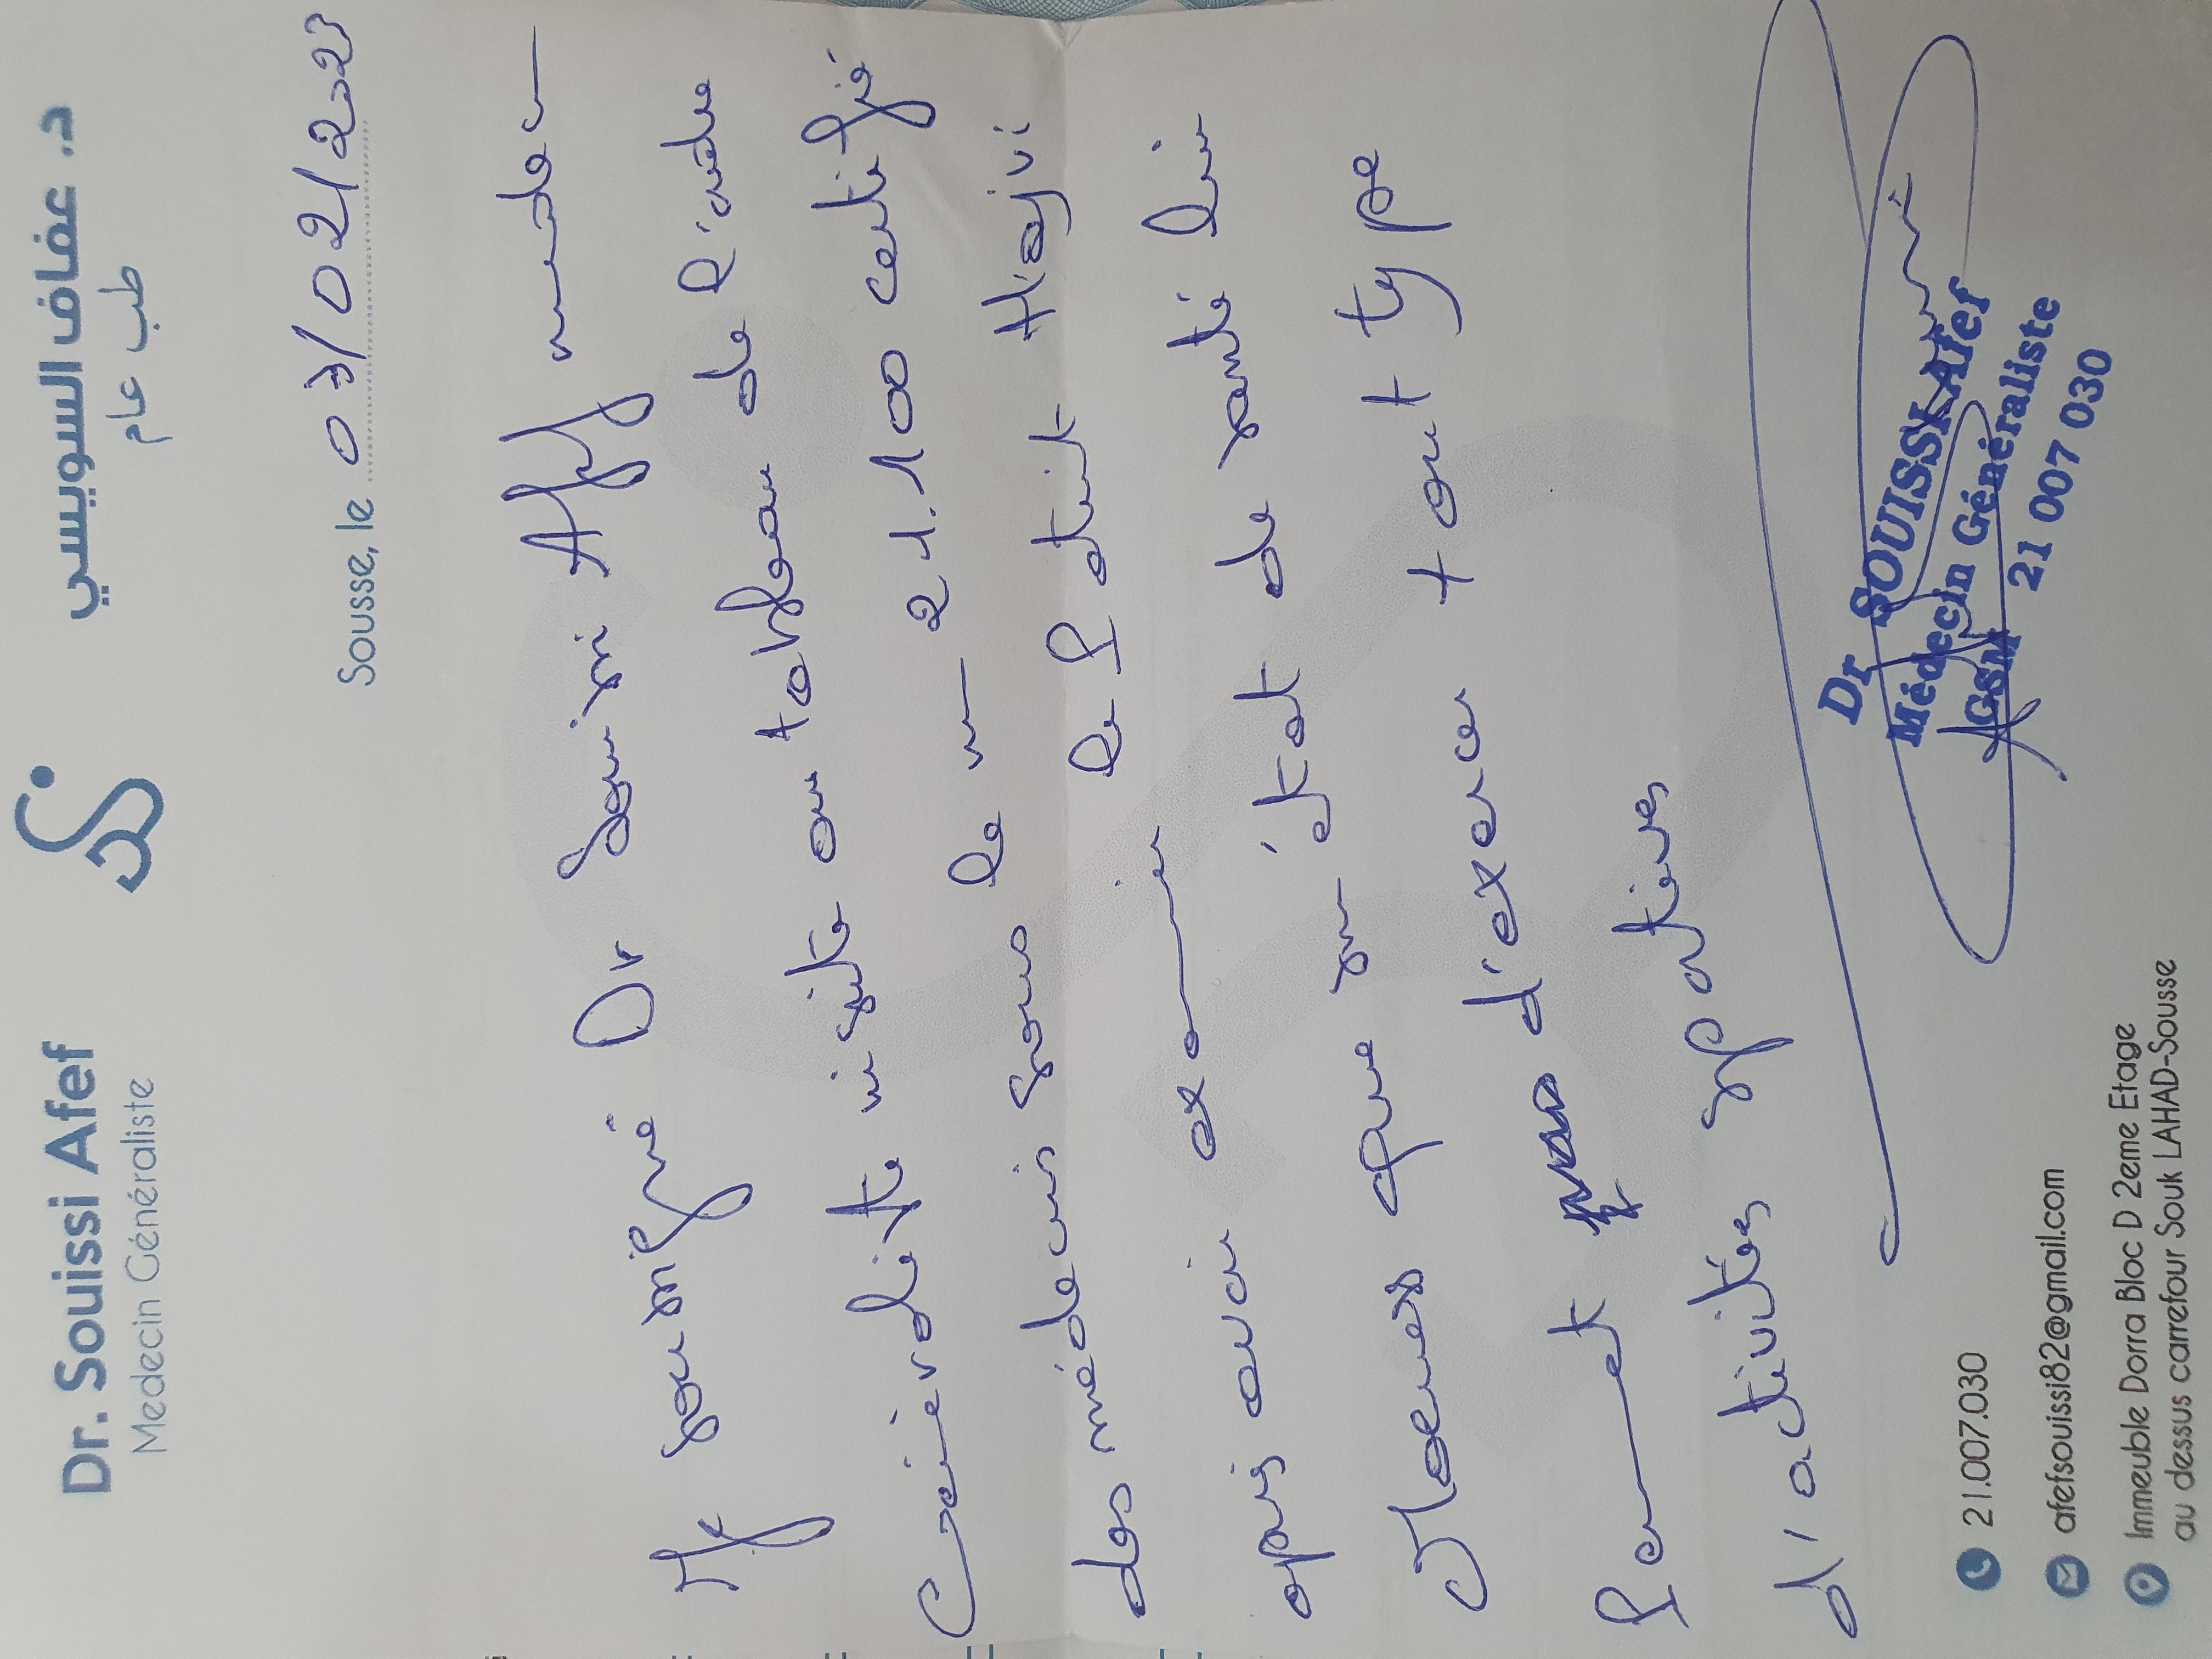 Dr. Souissi Afef
Medecin Généraliste
د. عفاف السويسي
طب عام
Sousse, le 07/02/2023
soussigné Dr Souissi Afef médecin
Généraliste au tableau de l'ordre
des médecins sous le n 21.100 certifie
après avoir examiné Hajri
que son état de santé lui
permet d'exercer tout type
d'activités sportives
Dr SOUISSI Afef
Médecin Généraliste
GSM 21 007 030
21.007.030
afefsouissi82@gmail.com
Immeuble Dorra Bloc D 2eme Etage
au dessus carrefour Souk LAHAD-Sousse